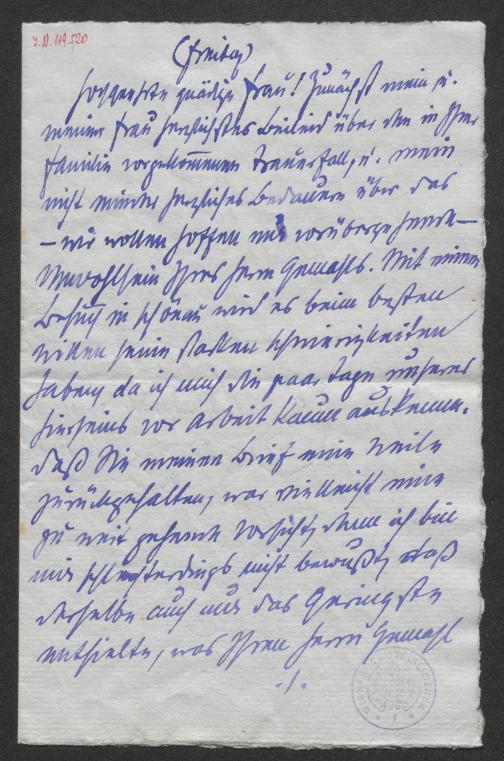 I.N. 119.520
(Freitag)
Hochgeehrte gnädige Frau! Zunächst mein u.
meiner Frau herzlichstes Beileid über den in Ihrer
Familie vorgekommenen Trauerfall, u. mein
nicht minder herzliches Bedauern über das
— wir wollen hoffen nur vorübergehende —
Unwohlsein Ihres Herrn Gemahls. Mit meinem
Besuch in Schönau wird es beim besten
Willen seine starken Schwierigkeiten
haben, da ich mich die paar Tage unseres
Hierseins vor Arbeit kaum auskenne.
Daß Sie meinen Brief eine Weile
zurückgehalten, war vielleicht eine
zu weit gehende Vorsicht, denn ich bin
mir schlechterdings nicht bewußt, daß
derselbe auch nur das Geringste
enthielte, was Ihren Herrn Gemahl
./.